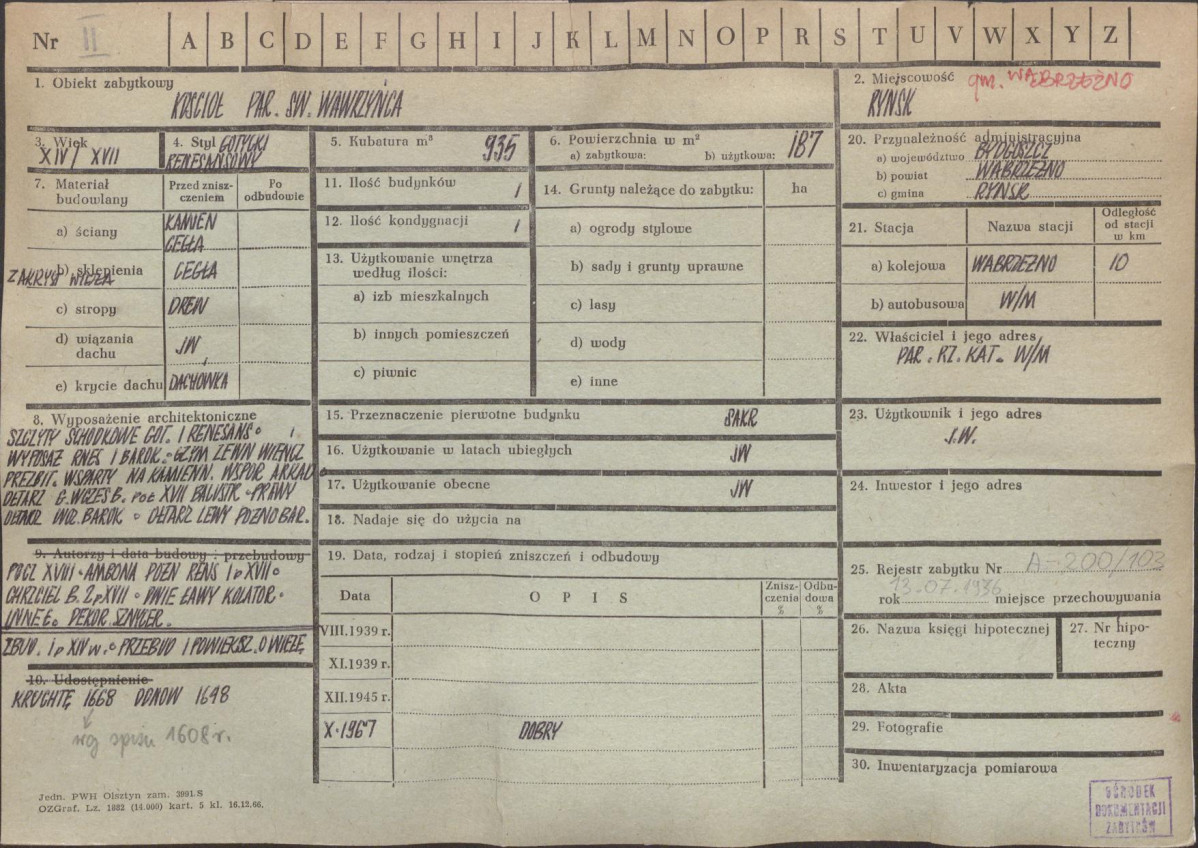 Nr II A B C D E F G H I J K L M N O P R S T U V W X Y Z
1. Obiekt zabytkowy
KOŚCIOŁ PAR. ŚW. WAWRZYŃCA
2. Miejscowość gm. WĄBRZEŹNO
RYŃSK
3. Wiek
XIV/ XVII
4. Styl GOTYCKI
RENESANSOWY
5. Kubatura m³ 935
6. Powierzchnia w m²
a) zabytkowa: b) użytkowa: 187
20. Przynależność administracyjna
a) województwo BYDGOSZCZ
b) powiat WĄBRZEŹNO
c) gmina RYŃSK
7. Materiał budowlany
Przed zniszczeniem
Po odbudowie
a) ściany KAMIEŃ
CEGŁA
b) sklepienia CEGŁA
ZAKRYST WIEŻA
c) stropy DREW
d) wiązania dachu JW
e) krycie dachu DACHÓWKA
11. Ilość budynków 1
12. Ilość kondygnacji 1
13. Użytkowanie wnętrza według ilości:
a) izb mieszkalnych
b) innych pomieszczeń
c) piwnic
14. Grunty należące do zabytku: ha
a) ogrody stylowe
b) sady i grunty uprawne
c) lasy
d) wody
e) inne
21. Stacja Nazwa stacji Odległość od stacji w km
a) kolejowa WĄBRZEŹNO 10
b) autobusowa W/M
22. Właściciel i jego adres
PAR. RZ. KAT. W/M
8. Wyposażenie architektoniczne
SZCZYTY SCHODKOWE GOT. I RENESANS
WYPOSAŻ RNES I BAROK. GZYM ZEWN WIEŃCZ
PREZBIT. WSPARTY NA KAMIENN. WSPOR ARKAD
OŁTARZ G. WCZES B. POŁ XVII BALUSTR PRAWY
OŁTARZ WCZ. BAROK OŁTARZ LEWY POZNOBAR.
9. Autorzy i data budowy i przebudowy
POCZ XVIII AMBONA POZN RENS I p XVII
CHRZCIEL B. 2 p XVII DWIE ŁAWY KOLATOR
INNE G. DEKOR. SZNYCER.
ZBUD. I p XIV w. PRZEBUD I POWIĘKSZ. O WIEŻĘ
10. Udostępnienie
KRUCHTĘ 1668 ODNOW 1698
wg spisu 1608 r.
15. Przeznaczenie pierwotne budynku SAKR
16. Użytkowanie w latach ubiegłych JW
17. Użytkowanie obecne JW
18. Nadaje się do użycia na
19. Data, rodzaj i stopień zniszczeń i odbudowy
Data OPIS Zniszczenia % Odbudowa %
VIII.1939 r.
XI.1939 r.
XII.1945 r.
X.1967 DOBRY
23. Użytkownik i jego adres
J.W.
24. Inwestor i jego adres
25. Rejestr zabytku Nr A-200/103
rok 13.07.1936 miejsce przechowywania
26. Nazwa księgi hipotecznej
27. Nr hipoteczny
28. Akta
29. Fotografie
30. Inwentaryzacja pomiarowa
Jedn. PWH Olsztyn zam. 3991.S
OZGraf. Lz. 1682 (14.000) kart. 5 kl. 16.12.66.
OŚRODEK
DOKUMENTACJI
ZABYTKÓW